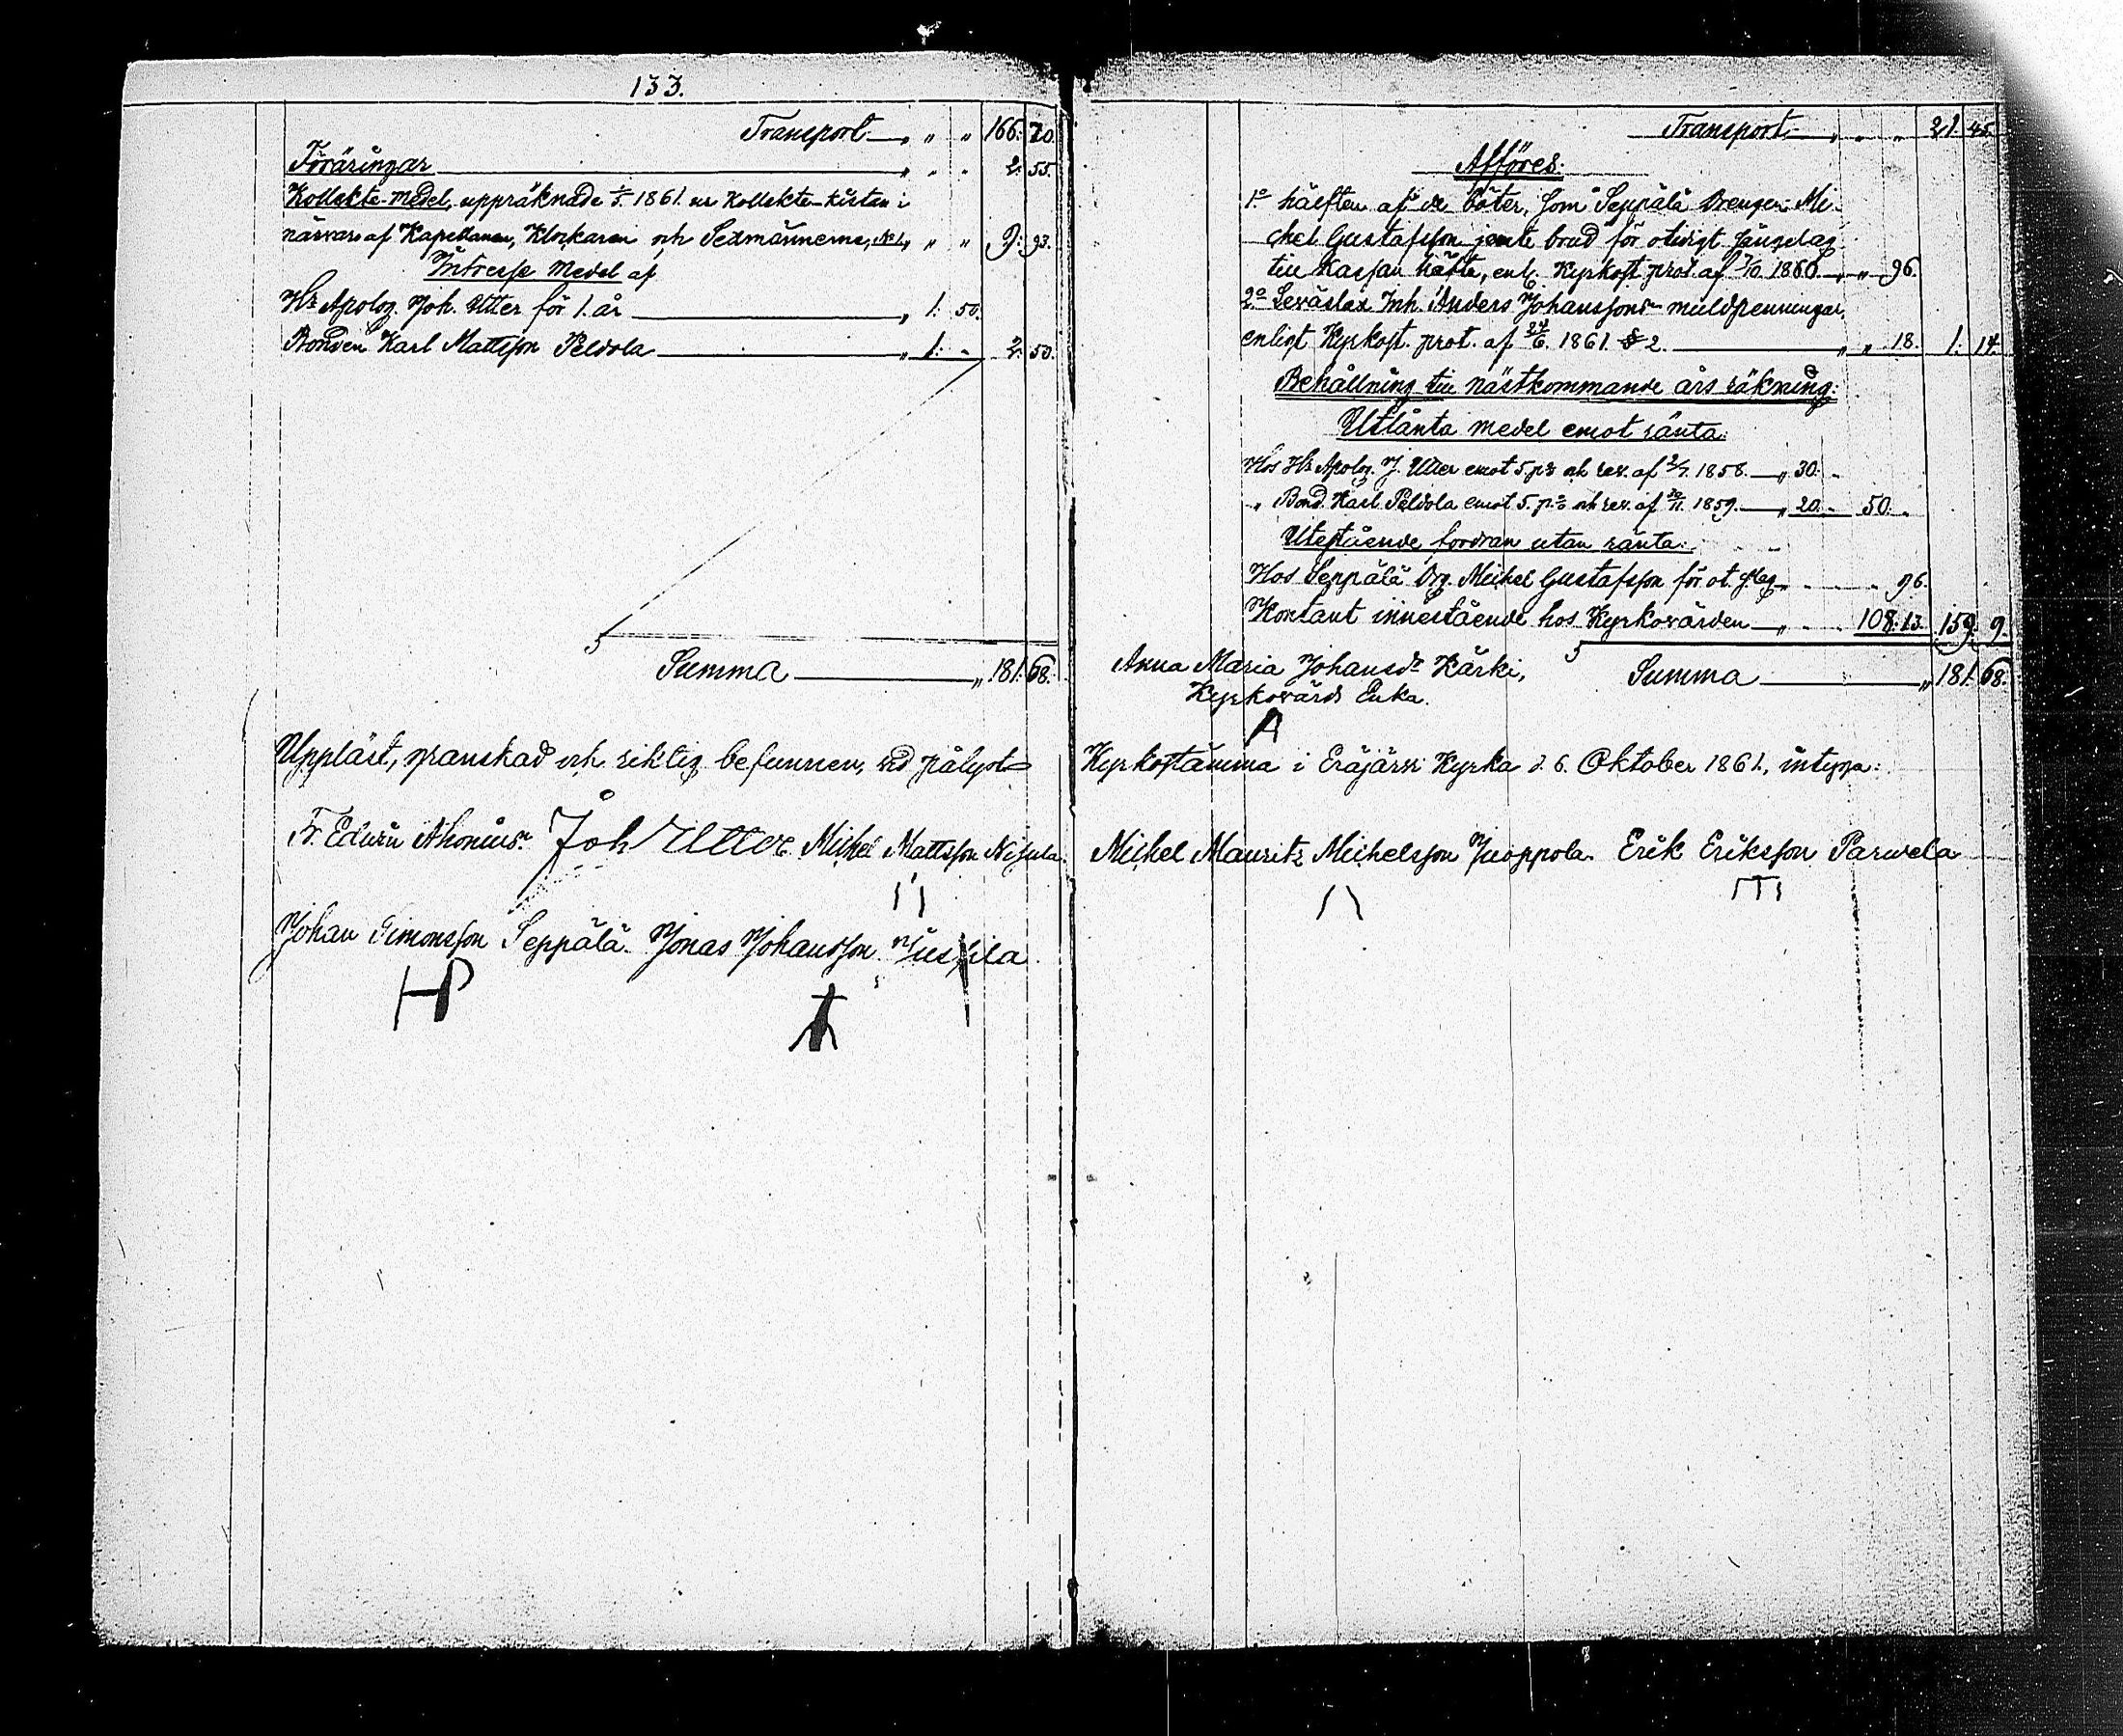 133.
Transport " " " 166. 70.
Föräringar " " " 2. 55.
Kollekte-medel, uppräknade 1861. ur Kollekte-kistan i
närvaro af Kapellanen, Klockaren och Sexmännerne, " " 9. 93.
Intresse medel af
Hr Apolog. Joh. Utter för 1. år " 1. 50.
Bonden Karl Mattsson Peldola " 1. - 2. 50.
Summa " 181. 68.
Uppläst, granskad och riktig befunnen, vid pålyst
Fr. Edwin Ahonius. Joh Utter Michel Mattsson Nisula.
Johan Simonsson Seppälä. Jonas Johansson
Transport " " " 21. 45.
Afföres:
1o hälften af de böter, som Seppälä Drengen Mi-
chel Gustafsson jemte brud för otidigt sängelag
till Kassan häfta, enl. Kyrkost. prot. af 7/10. 1860. " " 96.
2o Leväslax Inh. Anders Johanssons mullpenningar,
enligt Kyrkost. prot. af 24/6. 1861. § 2. " " 18. 1. 14.
Behållning till nästkommande års räkning:
Utlånta medel emot ränta:
Hos Hr Apolog. J. Utter emot 5. pr och rev. af 2/7. 1858. " 30. -
" Bond. Karl Peldola emot 5. pr och rev. af 1859. " 20. - 50. -
Utestående fordran utan ränta:
Hos Seppälä Drg. Michel Gustafsson för ot. s.lag " - - 96.
Kontant innestående hos Kyrkovärden " - - 108. 13. 159. 9.
Anna Maria Johansdr Kärki, Summa " 181. 68.
Kyrkovärds Enka.
Kyrkostämma i Eräjärvi Kyrka d. 6. Oktober 1861., intyga:
Michel Mauritz Michelsson Juoppola. Erik Eriksson Parwela